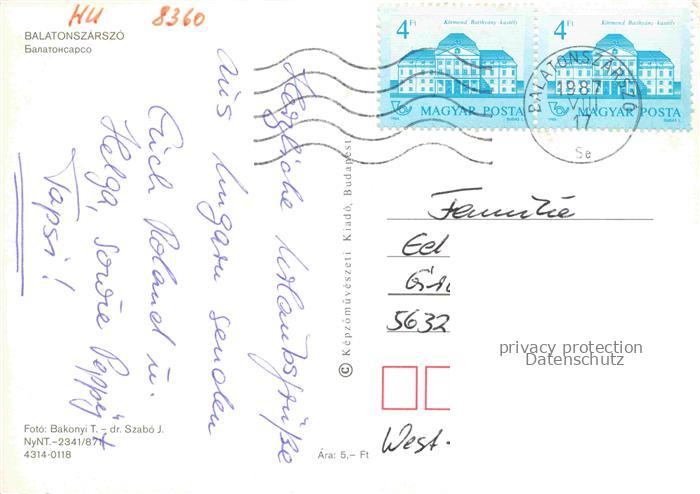 HU 8360
BALATONSZÁRSZÓ
Балатонсарсо
4 Ft
Körmend, Batthyány-kastély
MAGYAR POSTA
4 Ft
Körmend, Batthyány-kastély
MAGYAR POSTA
BALATONSZÁRSZÓ
1987
VIII
17
Se
Herzliche Urlaubsgrüße
aus Ungarn senden
Euch Roland u.
Helga, sowie
Tapsi!
© Képzőművészeti Kiadó, Budapest
Familie
5632
West-
privacy protection
Datenschutz
Fotó: Bakonyi T. – dr. Szabó J.
NyNT.–2341/871
4314-0118
Ára: 5,– Ft